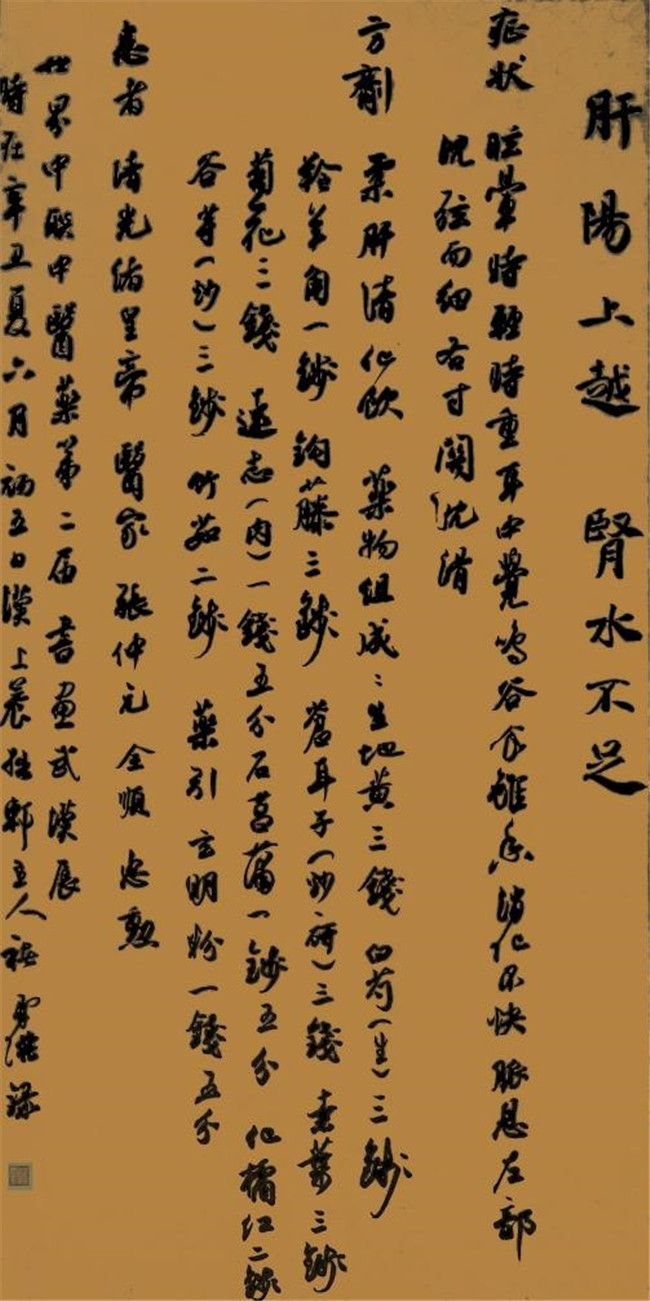 肝陽上越 腎水不足
症状 眩暈時輕時重耳中覺鳴谷食雖香消化不快 脈息左部
沈弦而細右寸關沈滑
方劑 柔肝清化飲 藥物組成：生地黄三錢 白芍（生）三錢
羚羊角一錢 鈎藤三錢 蒼耳子（炒、研）三錢 桑葉三錢
菊花二錢 遠志（肉）一錢五分石菖蒲一錢五分 化橘红二錢
谷芽（炒）三錢 竹茹二錢 藥引 玄明粉一錢五分
患者 清光緒皇帝 醫家 張仲元 全順 忠勳
世界中联中醫藥第二届書畫武漢展
時在辛丑夏六月初五日漢上養拙軒主人